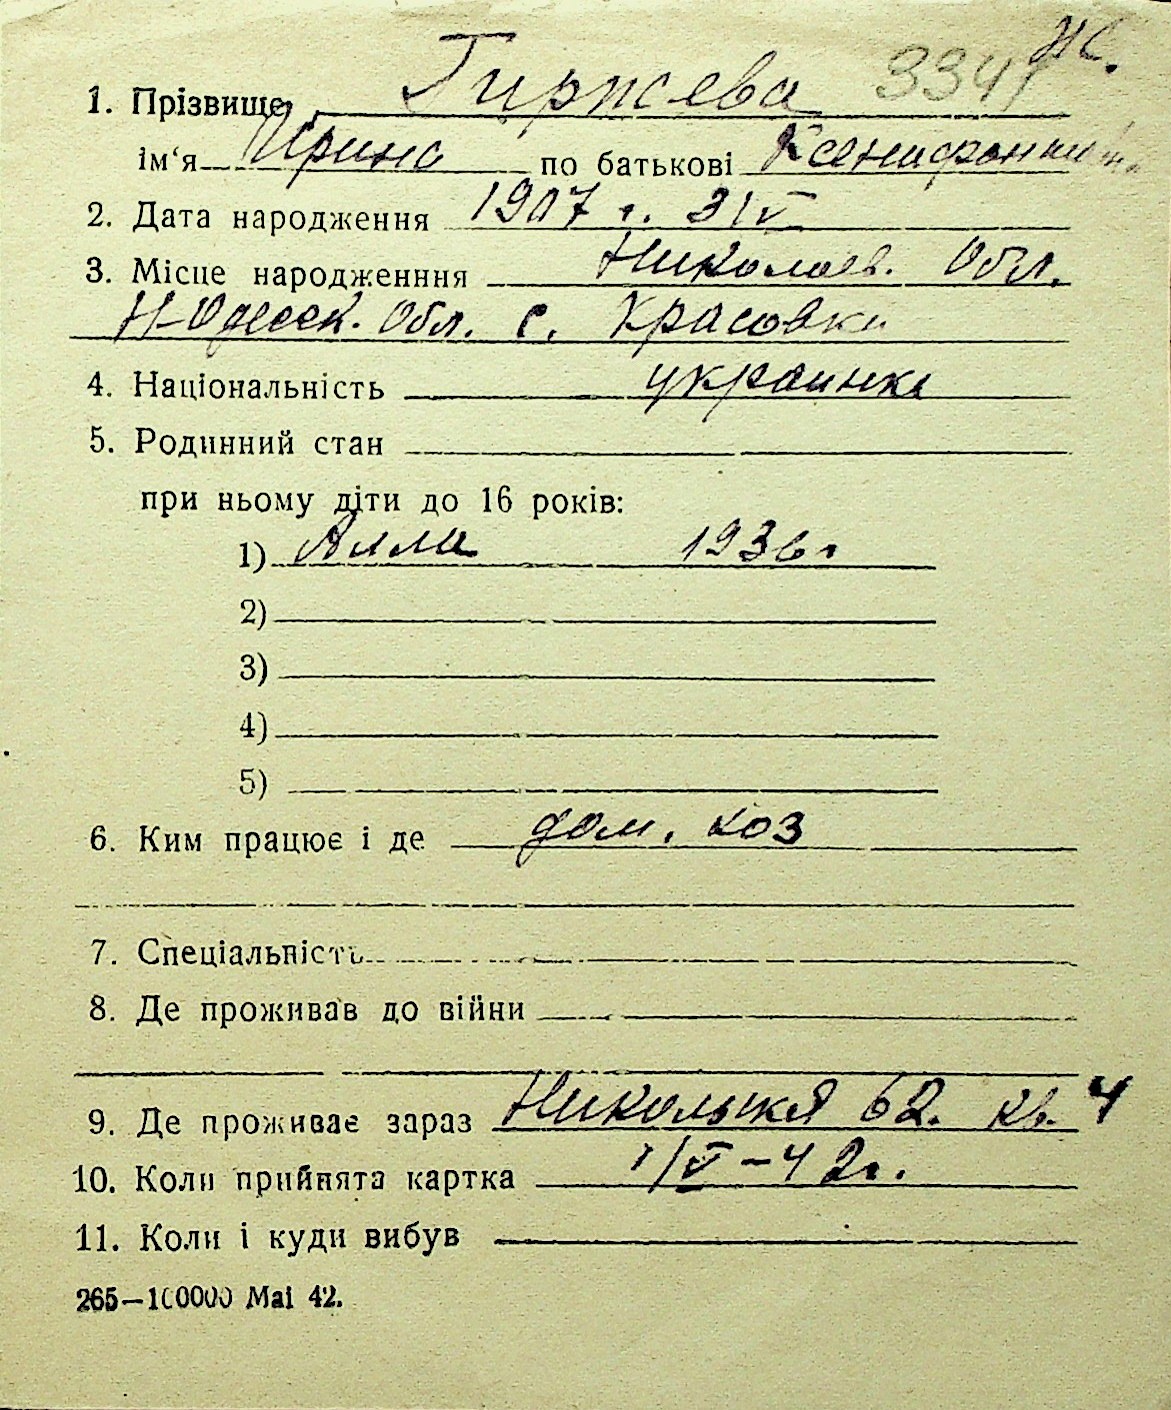 НС.
3341
1. Прізвище, Гиржева
ім‘я Ирина по батькові
2. Дата народження 1907 г. 3/V
3. Місце народженння Николаев. Обл.
Н-Одесск. Обл. с. Красовка
4. Національність украинка
5. Родинний стан
при ньому діти до 16 років:
1) Алла 1936г
2)
3)
4)
5)
6. Ким працює і де дом. хоз
7. Спеціальність
8. Де проживав до війни
9. Де проживає зараз 62. кв. 4
10. Коли прийнята картка 1/V-42г.
11. Коли і куди вибув
265—100000 Маі 42.